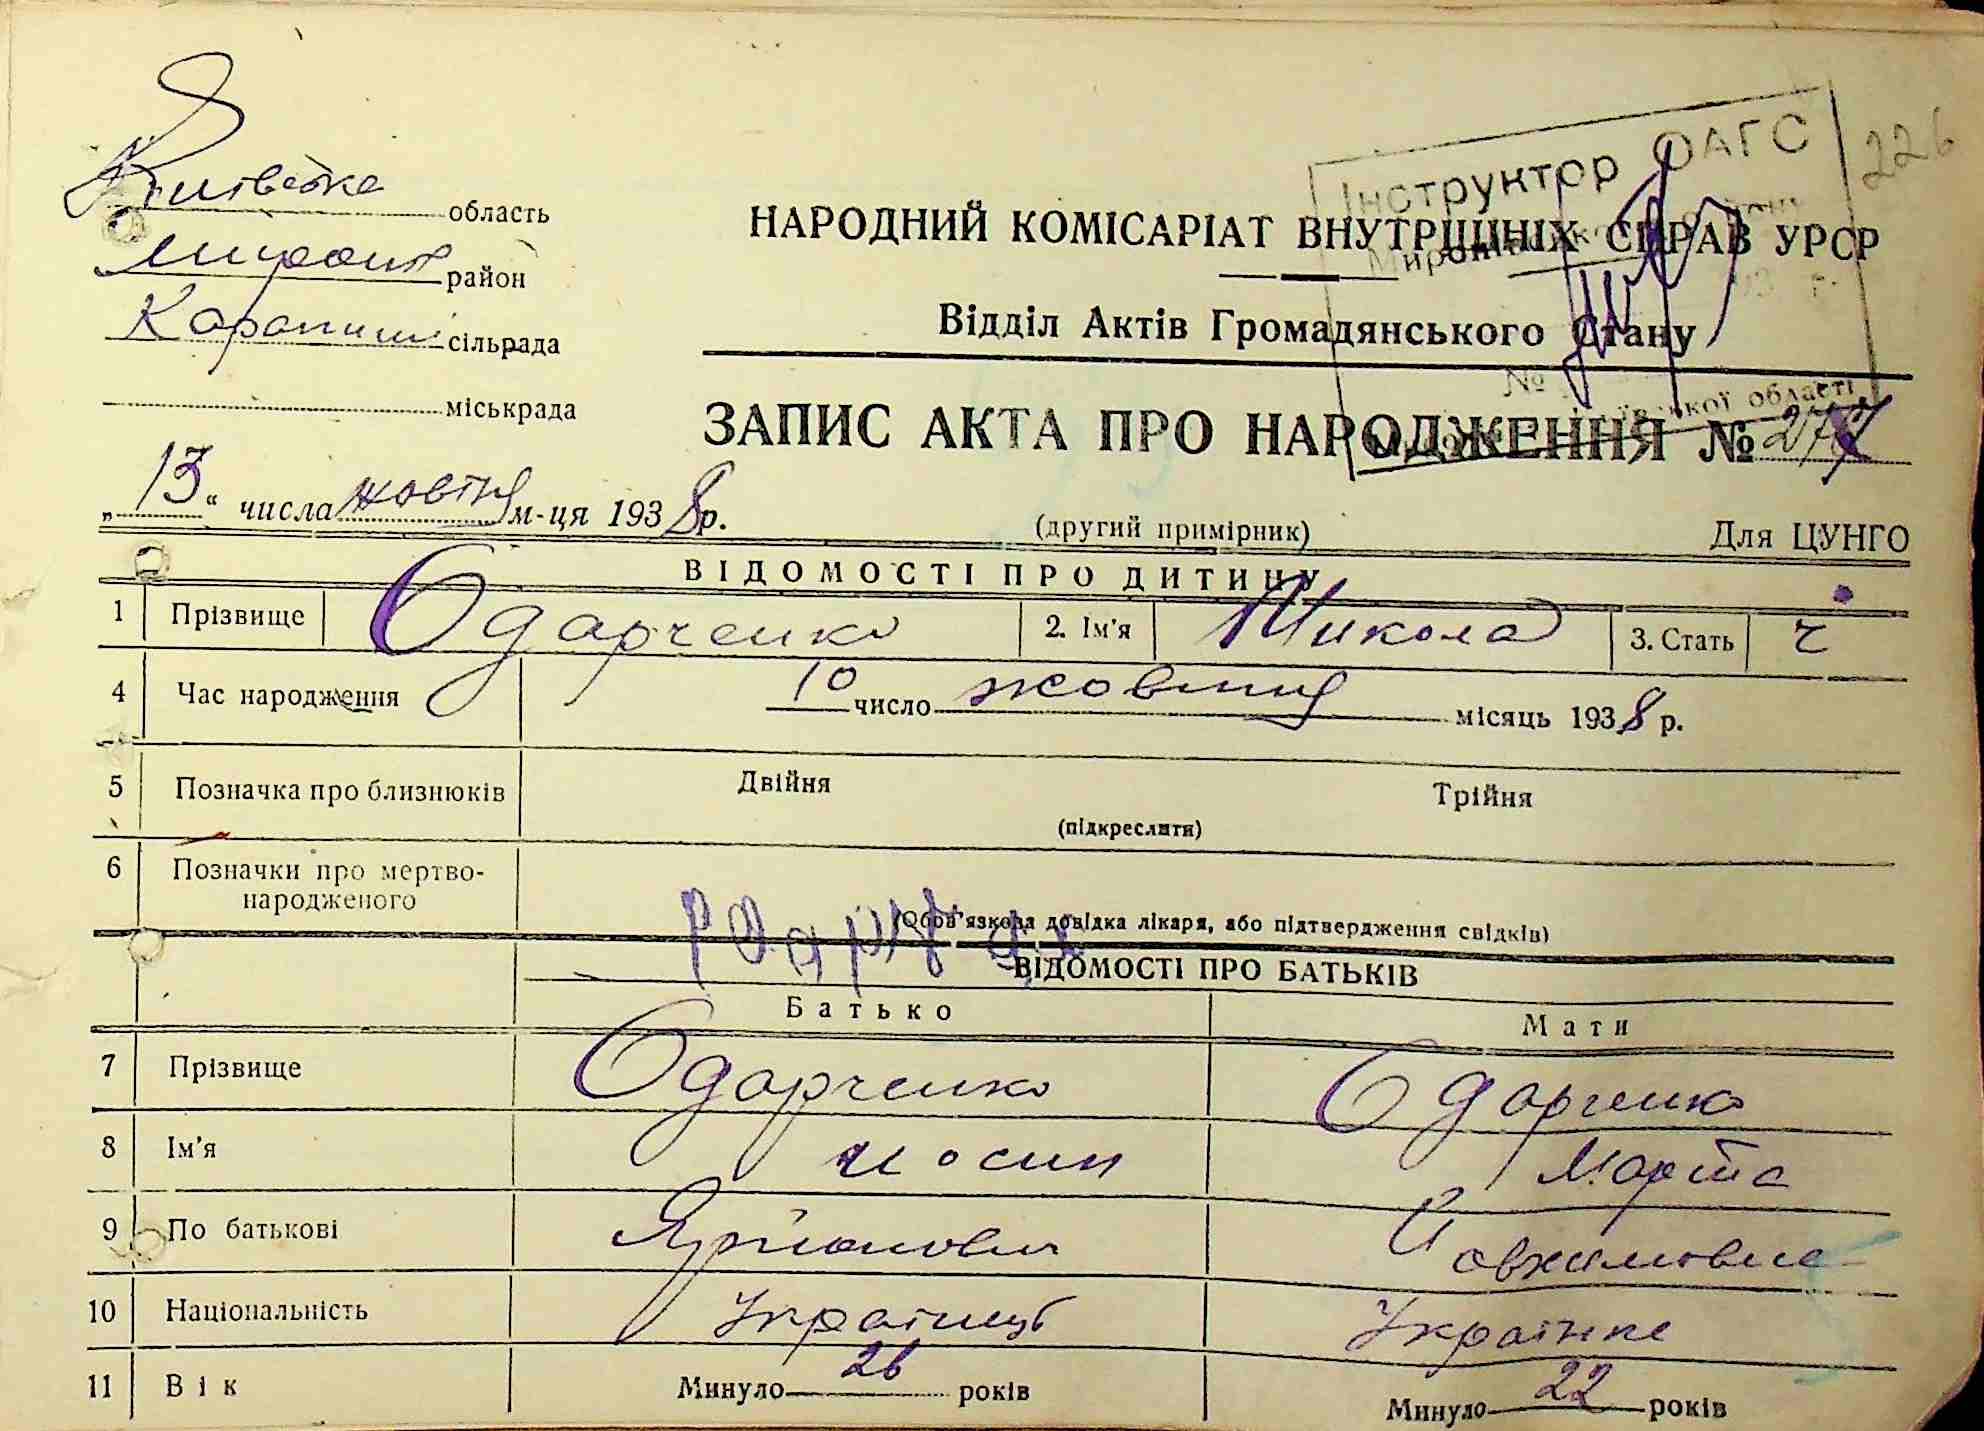 226
Інструктор ОАГС
Київська область
район
Карапиші сільрада
міськрада
НАРОДНИЙ КОМІСАРІАТ ВНУТРІШНІХ СПРАВ УРСР
Відділ Актів Громадянського Стану
№ області
ЗАПИС АКТА ПРО НАРОДЖЕННЯ № 277
„13“ числа жовтня м-ця 1938 р.
(другий примірник) Для ЦУНГО
ВІДОМОСТІ ПРО ДИТИНУ
1 Прізвище Одарченко 2. Ім'я Микола 3. Стать ч
4 Час народження 10 число жовтня місяць 1938 р.
5 Позначка про близнюків Двійня Трійня
(підкреслити)
6 Позначки про мертво-
народженого
(Обов'язкова довідка лікаря, або підтвердження свідків)
ВІДОМОСТІ ПРО БАТЬКІВ
Батько Мати
7 Прізвище Одарченко Одарченко
8 Ім'я Иосип Марта
9 По батькові
10 Національність Українець Українка
11 Вік Минуло 26 років Минуло 22 років